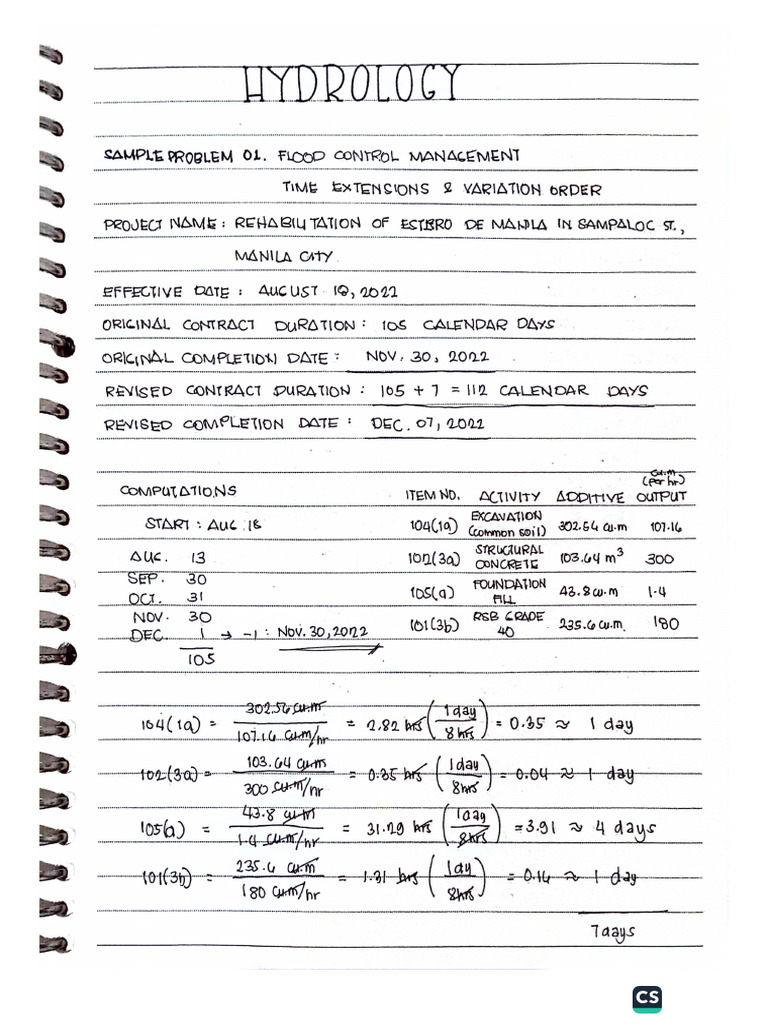 HYDROLOGY
SAMPLE PROBLEM 01. FLOOD CONTROL MANAGEMENT
TIME EXTENSIONS & VARIATION ORDER
PROJECT NAME: REHABILITATION OF ESTERO DE MANILA IN SAMPALOC ST.,
MANILA CITY
EFFECTIVE DATE: AUGUST 18, 2022
ORIGINAL CONTRACT DURATION: 105 CALENDAR DAYS
ORIGINAL COMPLETION DATE: NOV. 30, 2022
REVISED CONTRACT DURATION: 105 + 7 = 112 CALENDAR DAYS
REVISED COMPLETION DATE: DEC. 07, 2022
COMPUTATIONS
START: AUG 18
AUG. 13
SEP. 30
OCT. 31
NOV. 30
DEC. 1 → -1: NOV. 30, 2022
105
ITEM NO. ACTIVITY ADDITIVE cu.m (per hr) OUTPUT
104(1a) EXCAVATION (common soil) 302.56 cu.m 107.16
102(3a) STRUCTURAL CONCRETE 103.64 m³ 300
105(a) FOUNDATION FILL 43.8 cu.m 1.4
101(3b) RSB GRADE 40 235.6 cu.m. 180
104(1a) = 302.56 cu.m / 107.16 cu.m/hr = 2.82 hrs (1 day / 8 hrs) = 0.35 ≈ 1 day
102(3a) = 103.64 cu.m / 300 cu.m/hr = 0.35 hrs (1 day / 8 hrs) = 0.04 ≈ 1 day
105(a) = 43.8 cu.m / 1.4 cu.m/hr = 31.29 hrs (1 day / 8 hrs) = 3.91 ≈ 4 days
101(3b) = 235.6 cu.m / 180 cu.m/hr = 1.31 hrs (1 day / 8 hrs) = 0.16 ≈ 1 day
7 days
CS